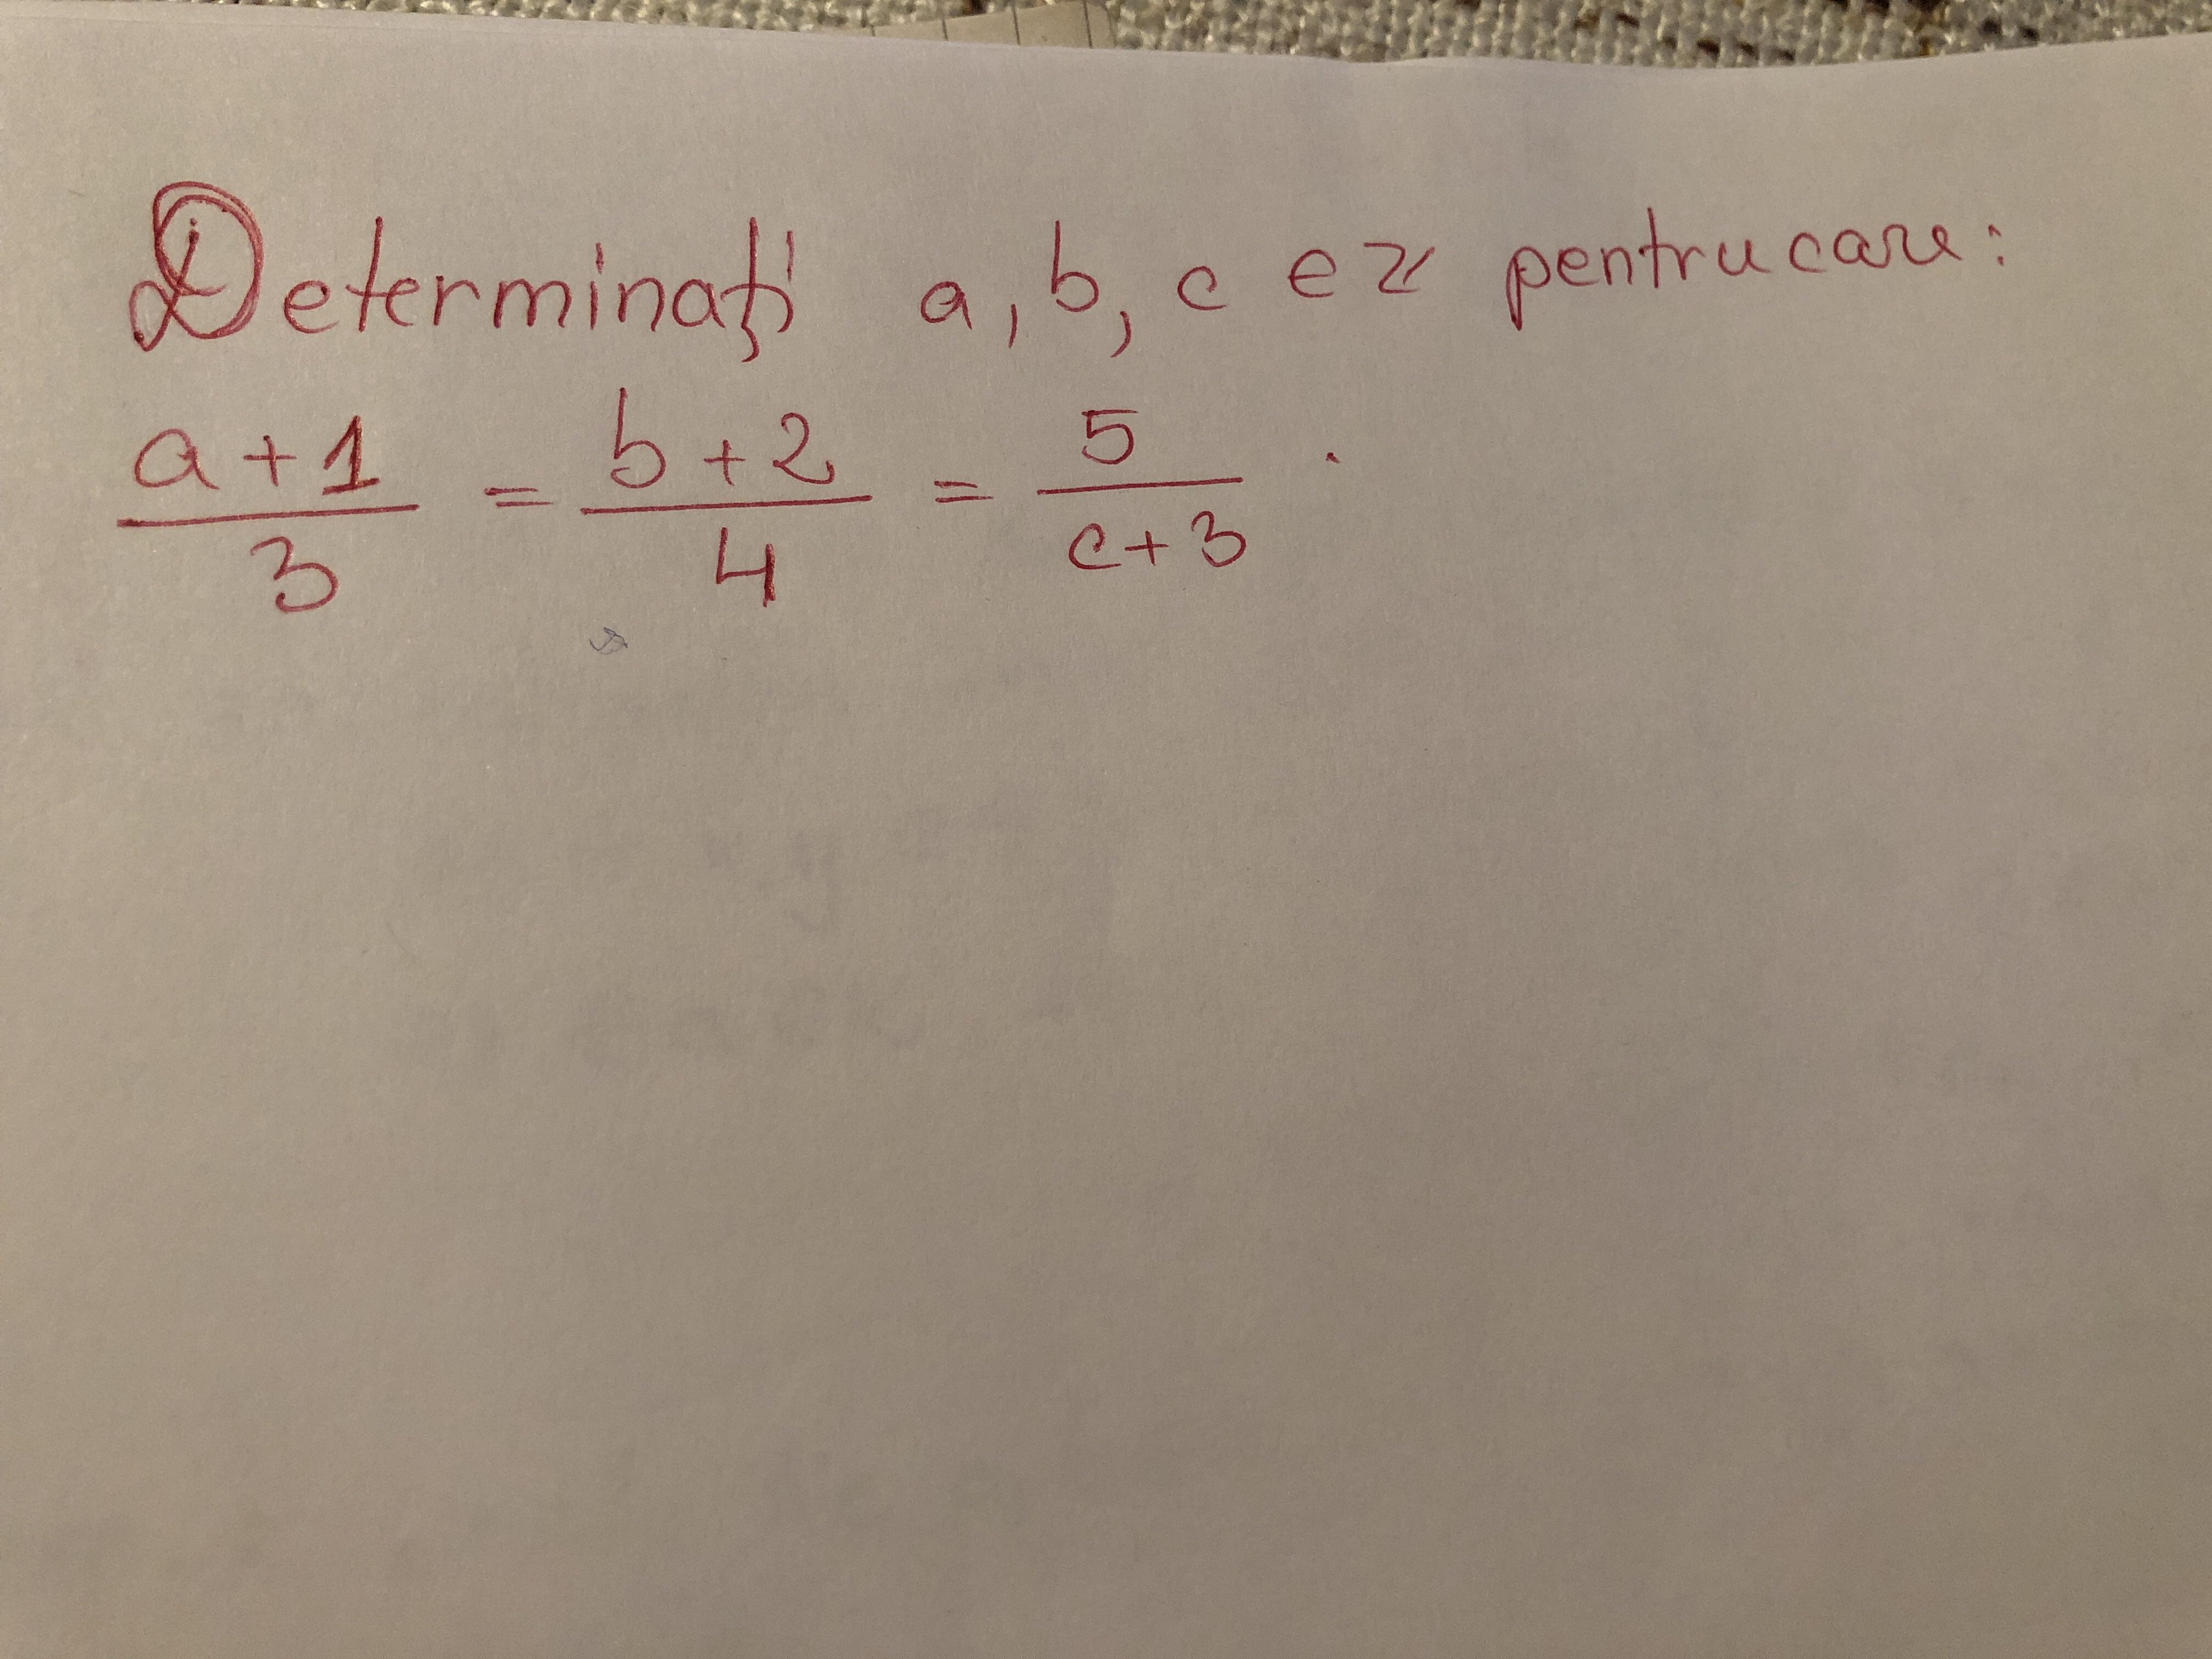 Determinați a, b, c ∈ ℤ pentru care:
a+1/3 = b+2/4 = 5/c+3 .